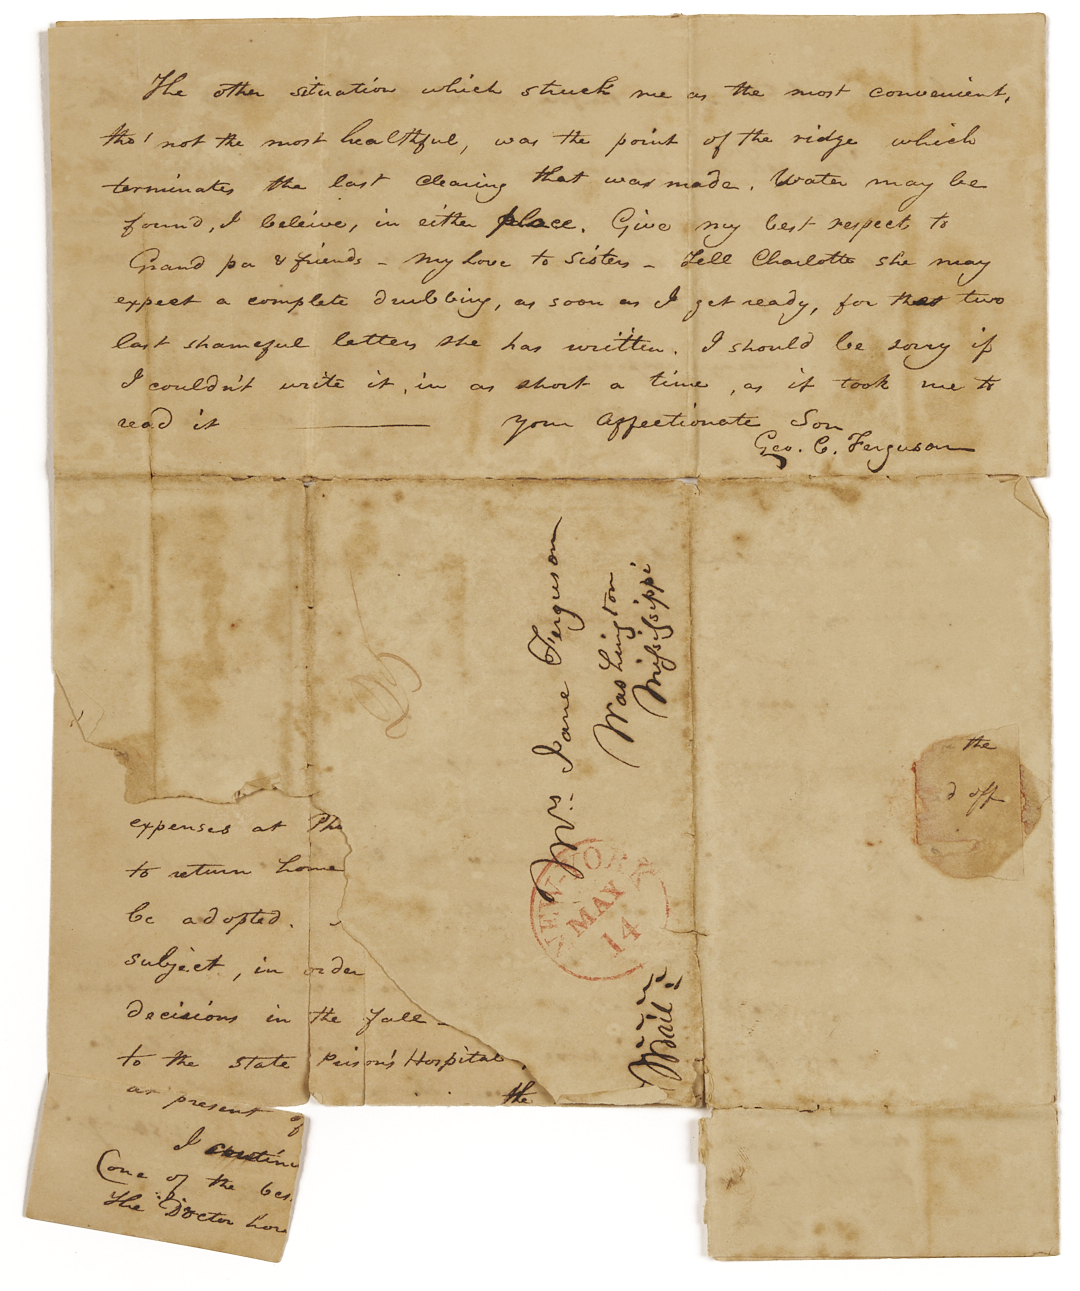 The other situation which struck me as the most convenient,
tho' not the most healthful, was the point of the ridge which
terminates the last clearing that was made. Water may be
found, I beleive, in either place. Give my best respect to
Grand pa & friends – My love to Sisters – Tell Charlotte she may
expect a complete drubbing, as soon as I get ready, for the two
last shameful letters she has written. I should be sorry if
I couldn't write it, in as short a time, as it took me to
read it your affectionate Son
Geo. C. Ferguson
Mrs. Jane Ferguson
Washington
Mississippi
Mail
NEW-YORK
MAY
14
the
d off
expenses at Ph
to return home
be adopted.
subject, in order
decisions in the fall –
to the State Prison's Hospital,
the
as present of
I continu
(one of the bes
The Doctor